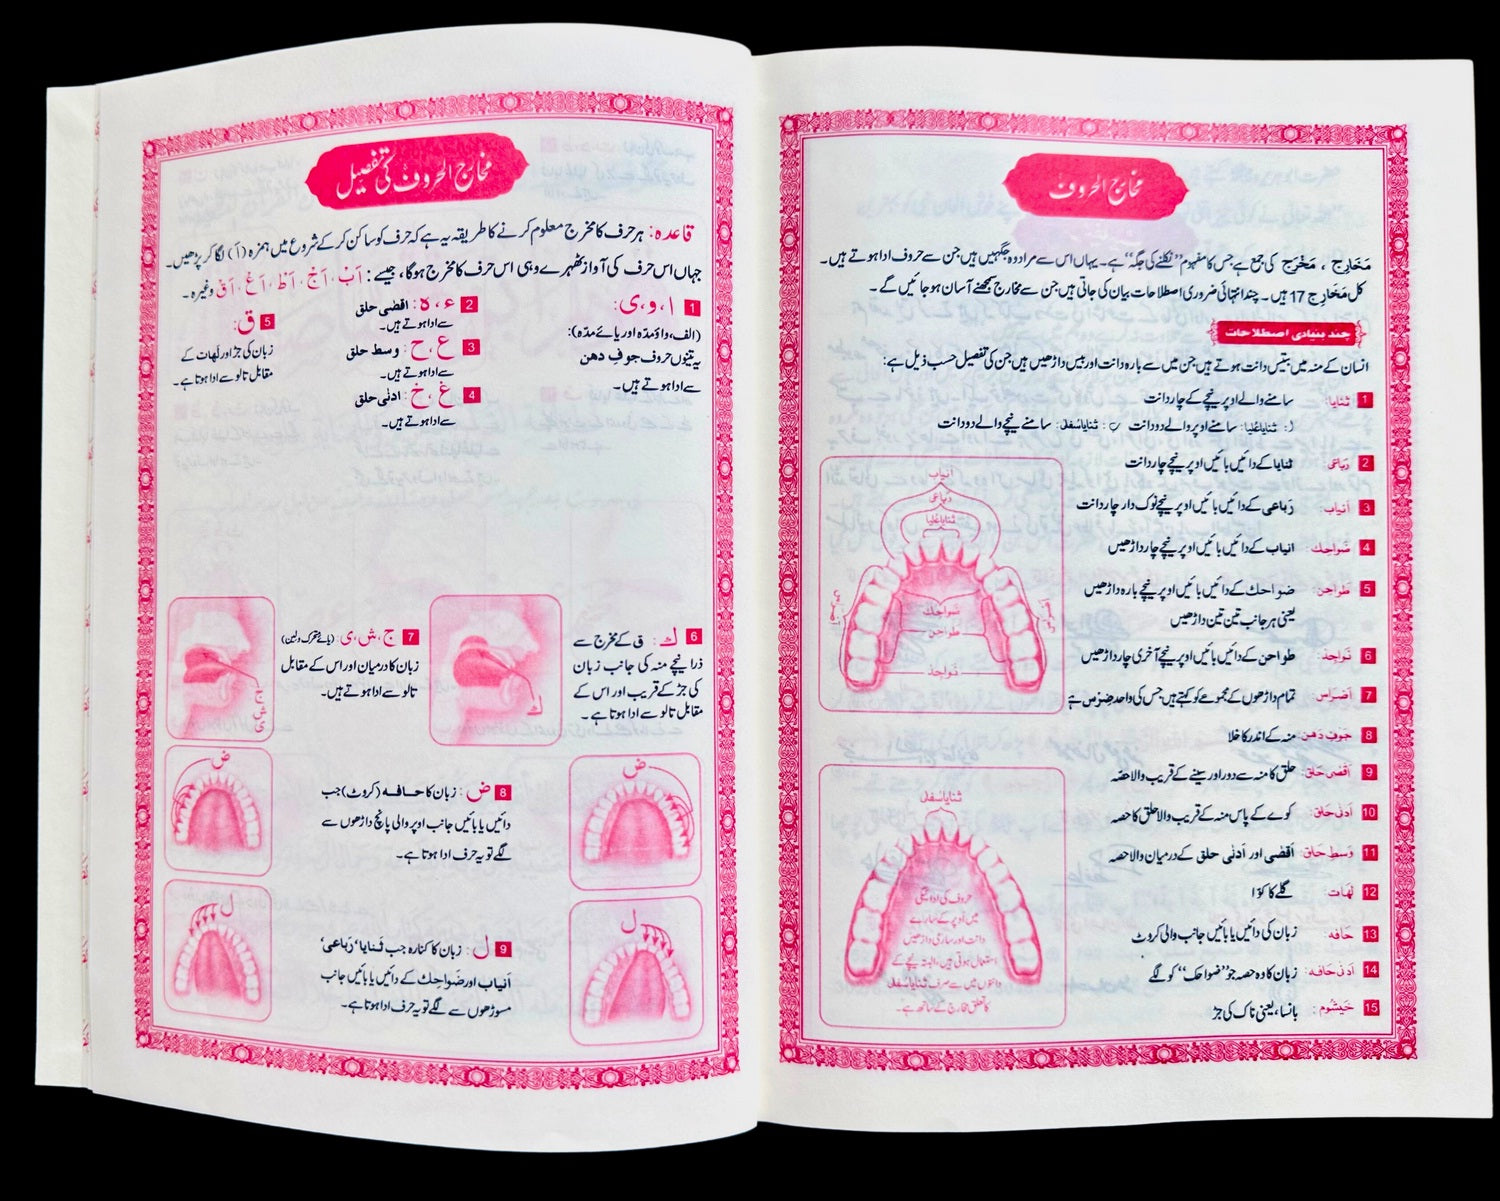 مخارج الحروف
مَخَارِج ، مَخْرَج کی جمع ہے جس کا مفہوم ”نکلنے کی جگہ“ ہے۔ یہاں اس سے مراد وہ جگہیں ہیں جن سے حروف ادا ہوتے ہیں۔
کل مَخَارِج 17 ہیں۔ چند انتہائی ضروری اصطلاحات بیان کی جاتی ہیں جن سے مخارج سمجھنے آسان ہو جائیں گے۔
چند بنیادی اصطلاحات
انسان کے منہ میں بتیس دانت ہوتے ہیں جن میں سے بارہ دانت اور بیس داڑھیں ہیں جن کی تفصیل حسب ذیل ہے:
1 ثنایا: سامنے والے اوپر نیچے کے چار دانت
ثنایا عُلیا: سامنے اوپر والے دو دانت ثنایا سُفلیٰ: سامنے نیچے والے دو دانت
2 رَباعی ثنایا کے دائیں بائیں اوپر نیچے چار دانت
3 اَنیاب: رَباعی کے دائیں بائیں اوپر نیچے نوک دار چار دانت
4 ضَواحِك: انیاب کے دائیں بائیں اوپر نیچے چار داڑھیں
5 طَواحِن: ضواحك کے دائیں بائیں اوپر نیچے بارہ داڑھیں
یعنی ہر جانب تین تین داڑھیں
6 نَواجِذ: طواحن کے دائیں بائیں اوپر نیچے آخری چار داڑھیں
7 اَضراس: تمام داڑھوں کے مجموعے کو کہتے ہیں جس کی واحد ضِرس ہے
8 جَوفِ دَهن: منہ کے اندر کا خلا
9 اَقصٰی حلق: حلق کا منہ سے دور اور سینے کے قریب والا حصّہ
10 اَدنٰی حَلق: کوے کے پاس منہ کے قریب والا حلق کا حصہ
11 وَسطِ حَلق: اَقصٰی اور اَدنٰی حلق کے درمیان والا حصہ
12 لَهات: گلے کا کوّا
13 حافه: زبان کی دائیں یا بائیں جانب والی کروٹ
14 اَدنٰی حافه: زبان کا وہ حصہ جو ”ضواحك“ کو لگے
15 خَیشُوم: بانسا، یعنی ناک کی جڑ
انیاب
رَباعی
ثنایا عُلیا
اَضراس
ضَواحِك
طواحن
نَواجذ
اَضراس
ثنایا سُفلیٰ
حروف کی ادائیگی
میں اُوپر کے سارے
دانت اور ساری داڑھیں
استعمال ہوتی ہیں، البتہ نیچے کے
دانتوں میں سے صرف ثنایا سُفلیٰ
کا تعلق مخارج کے ساتھ ہے۔
مخارج الحروف کی تفصیل
قاعدہ: ہر حرف کا مخرج معلوم کرنے کا طریقہ یہ ہے کہ حرف کو ساکن کرکے شروع میں ہمزہ (اَ) لگا کر پڑھیں۔
جہاں اس حرف کی آواز ٹھہرے وہی اس حرف کا مخرج ہوگا، جیسے: اَبْ، اَجْ، اَطْ، اَغْ، اَقْ وغیرہ۔
1 ا، و، ی:
(الف، واؤ مدّہ اور یائے مدّہ):
یہ تینوں حروف جوفِ دهن
سے ادا ہوتے ہیں۔
2 ء، ہ: اقصٰی حلق
سے ادا ہوتے ہیں۔
3 ع، ح: وسط حلق
سے ادا ہوتے ہیں۔
4 غ، خ: ادنٰی حلق
سے ادا ہوتے ہیں۔
5 ق:
زبان کی جڑ اور لَهات کے
مقابل تالو سے ادا ہوتا ہے۔
6 ك: ق کے مخرج سے
ذرا نیچے منہ کی جانب زبان
کی جڑ کے قریب اور اس کے
مقابل تالو سے ادا ہوتا ہے۔
ك
7 ج، ش، ی (یائے متحرک و لین)
زبان کا درمیان اور اس کے مقابل
تالو سے ادا ہوتے ہیں۔
ج ش ی
8 ض: زبان کا حافه (کروٹ) جب
دائیں یا بائیں جانب اوپر والی پانچ داڑھوں سے
لگے تو یہ حرف ادا ہوتا ہے۔
ض
ض
9 ل: زبان کا کنارہ جب ثَنایا، رَباعی،
اَنیاب اور ضَواحِك کے دائیں یا بائیں جانب
مسوڑھوں سے لگے تو یہ حرف ادا ہوتا ہے۔
ل
ل